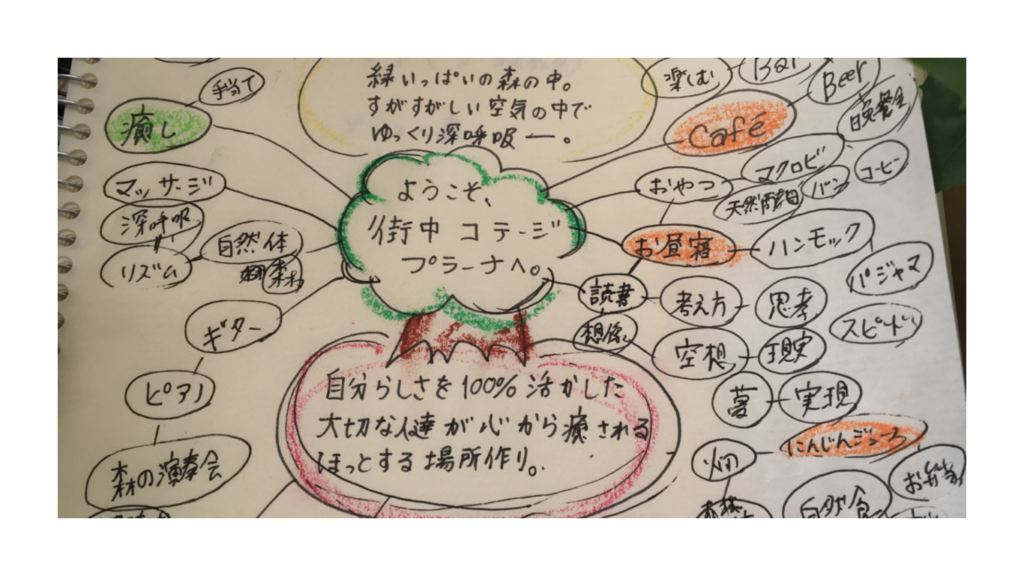 手当て
癒し
マッサージ
深呼吸
リズム
自然体
ギター
ピアノ
森の演奏会
緑いっぱいの森の中。
すがすがしい空気の中で
ゆっくり深呼吸ー。
ようこそ、
街中コテージ
プラーナへ。
自分らしさを100%活かした
大切な人達が心から癒される
ほっとする場所作り。
楽しむ
Bar
Beer
Café
晩餐会
おやつ
マクロビ
天然酵母
パン
コーヒー
お昼寝
ハンモック
パジャマ
読書
想像
考え方
思考
スピード
空想
現実
夢
実現
畑
にんじんジュース
自然食
お弁当